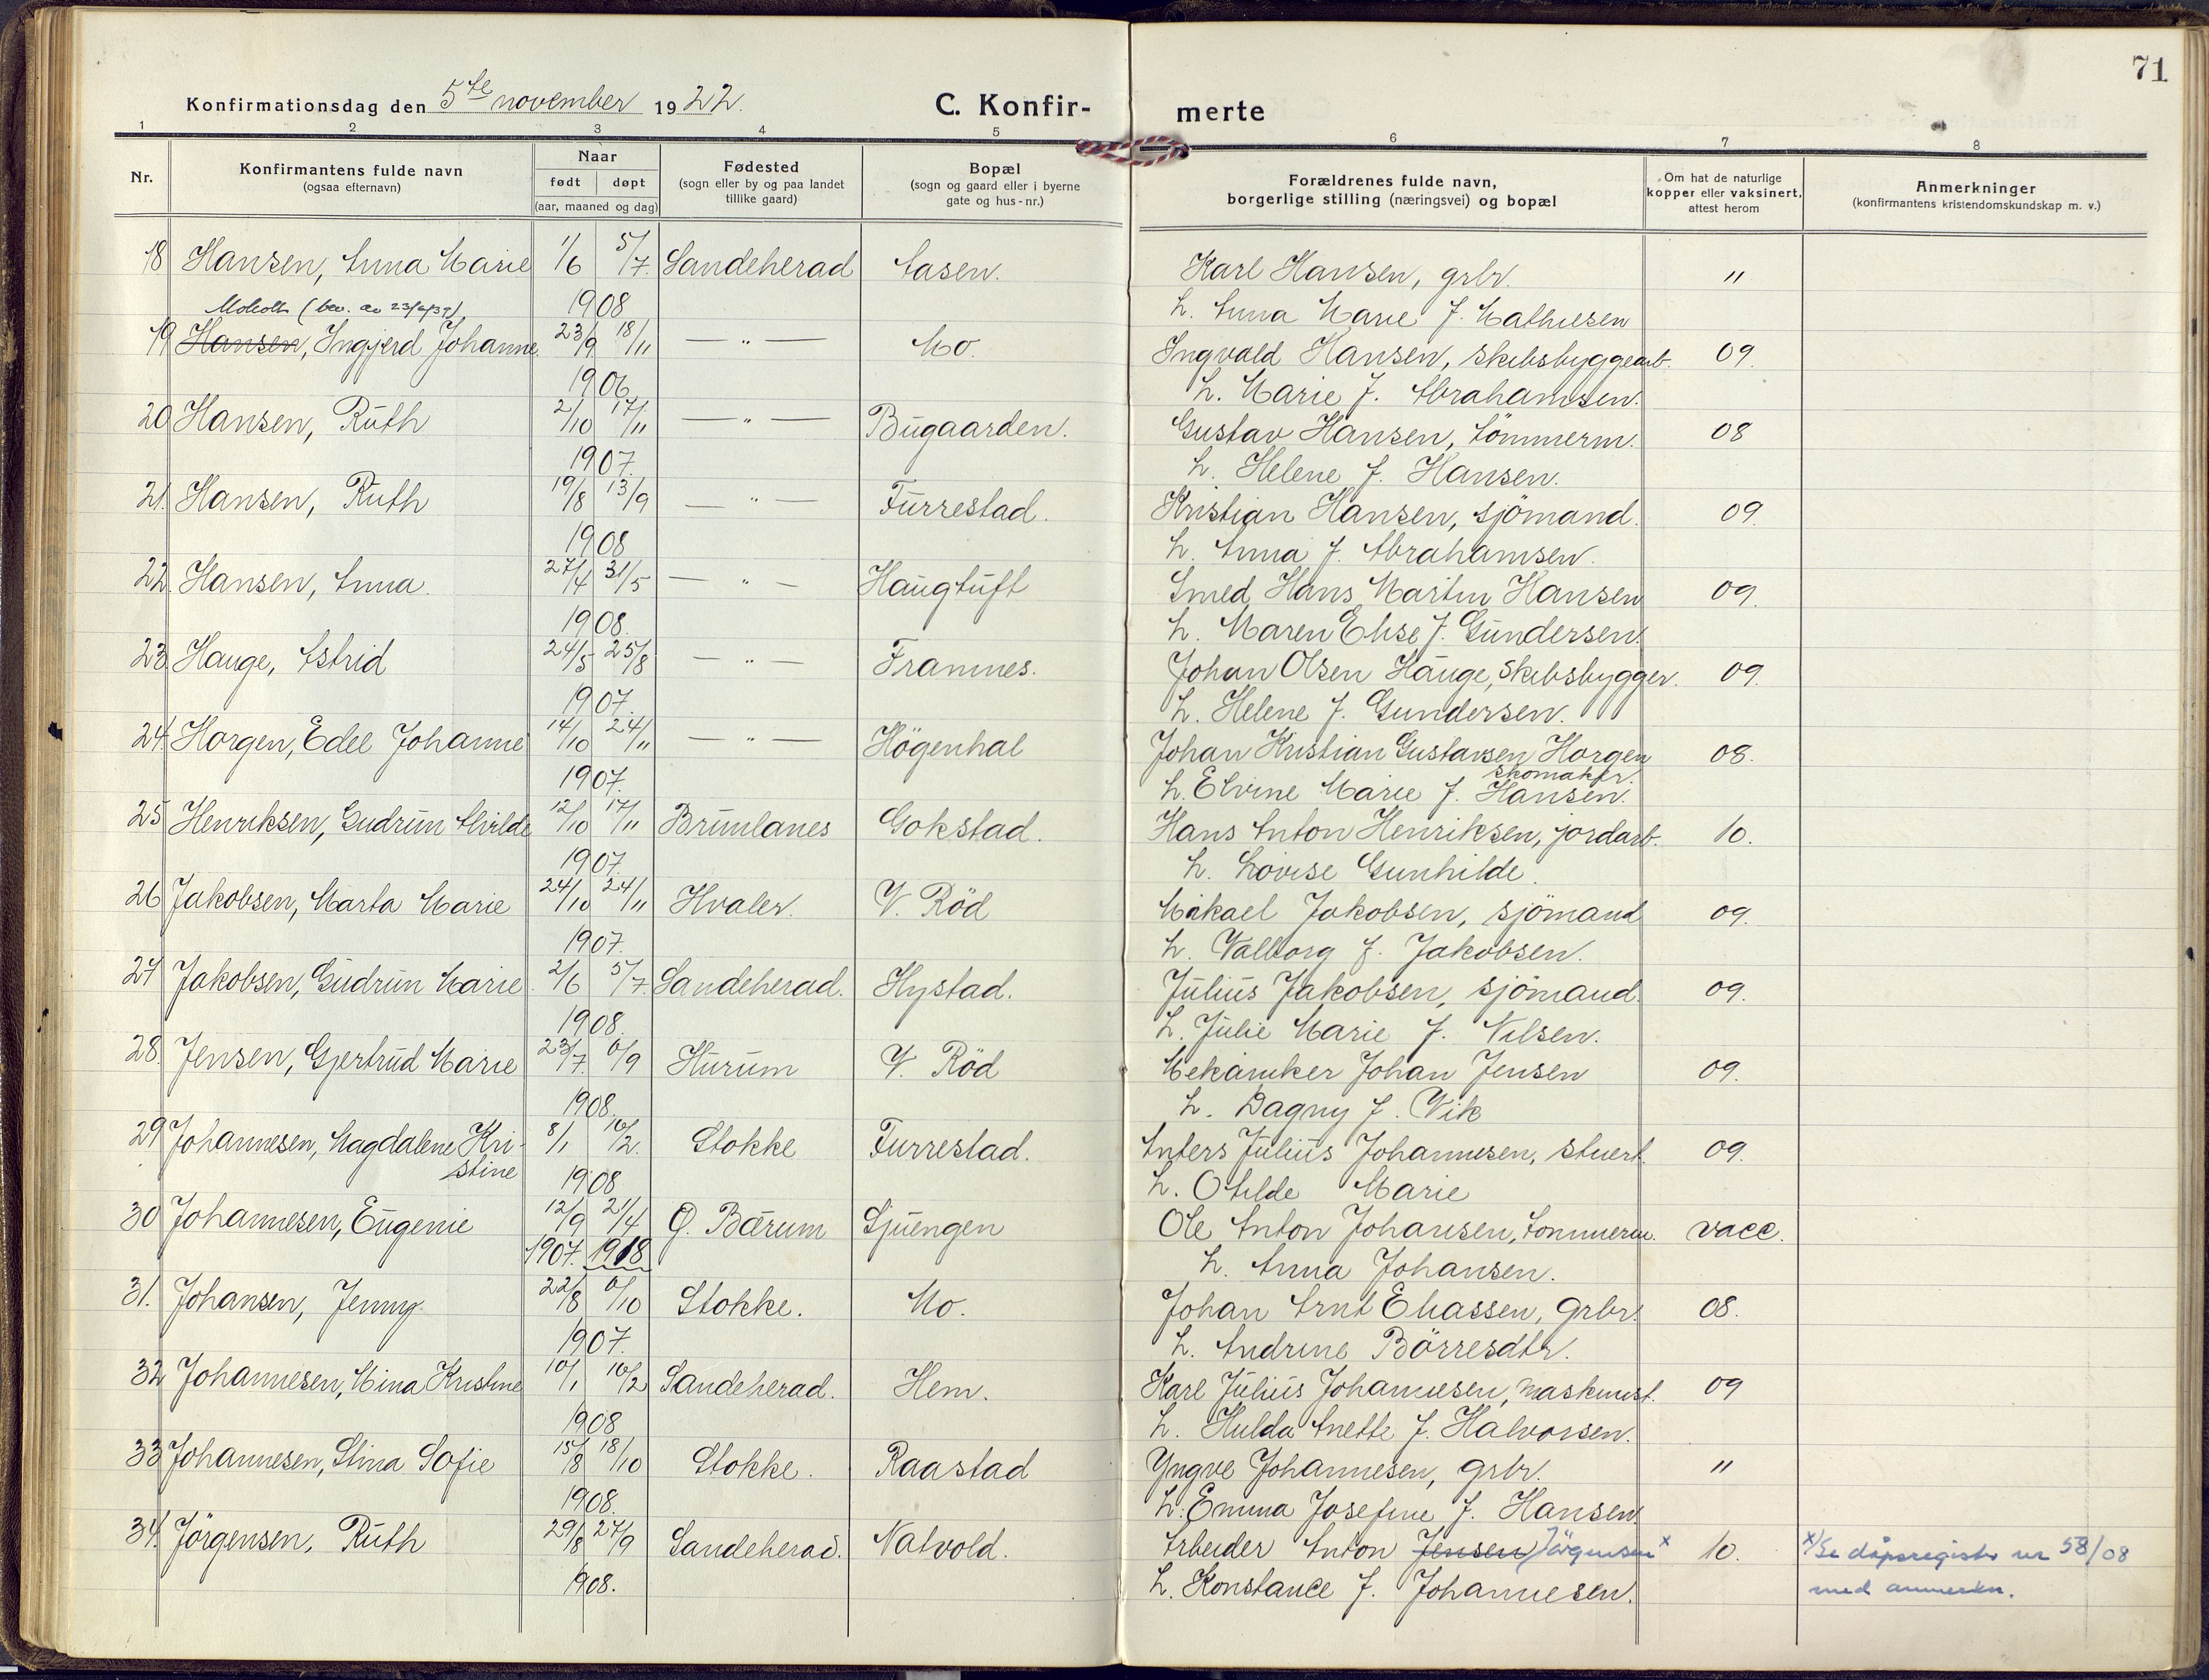 71
Konfirmationsdag den 5te november 1922. C. Konfirmerte
1 2 3 4 5 6 7 8
Nr. | Konfirmantens fulde navn (ogsaa efternavn) | Naar født | døpt (aar, maaned og dag) | Fødested (sogn eller by og paa landet tillike gaard) | Bopæl (sogn og gaard eller i byerne gate og hus-nr.) | Forældrenes fulde navn, borgerlige stilling (næringsvei) og bopæl | Om hat de naturlige kopper eller vaksinert, attest herom | Anmerkninger (konfirmantens kristendomskundskap m. v.)
18 Hansen, Anna Marie 1/6 5/7. Sandeherad Aasen. Karl Hansen, grbr. "
1908 h. Anna Marie f. Mathiesen
(bev. av 23/6/39)
19 Hansen, Ingjerd Johanne. 23/9 18/11 — " — Mo. Ingvald Hansen, skibsbyggearb. 09.
1906 h. Marie f. Abrahamsen.
20 Hansen, Ruth 2/10 17/11 — " — Bugaarden. Gustav Hansen, tömmerm. 08
1907. h. Helene f. Hansen.
21. Hansen, Ruth 19/8 13/9 — " — Furrestad. Kristian Hansen, sjömand. 09.
1908 h. Anna f. Abrahamsen.
22. Hansen, Anna. 27/4 31/5 — " — Haugtuft Smed Hans Martin Hansen 09.
1908. h. Maren Elise f. Gundersen.
23 Hauge, Astrid 24/5 25/8 — " — Framnes. Johan Olsen Hauge, skibsbygger. 09.
1907. h. Helene f. Gundersen.
24. Horgen, Edel Johanne 14/10 24/11 — " — Högenhal Johan Kristian Gustavsen Horgen 08.
skomaker.
1907. h. Elvine Marie f. Hansen.
25 Henriksen, Gudrun Alvilde 12/10 17/11 Brunlanes Gokstad. Hans Anton Henriksen, jordarb. 10.
1907. h. Lovise Gunhilde.
26 Jakobsen, Marta Marie 24/10 24/11 Hvaler. V. Röd Mikael Jakobsen, sjömand 09.
1907. h. Valborg f. Jakobsen.
27 Jakobsen, Gudrun Marie. 2/6 5/7. Sandeherad. Hystad. Julius Jakobsen, sjömand. 09.
1908. h. Julie Marie f. Nilsen.
28. Jensen, Gjertrud Marie 23/7. 6/9 Hurum V. Röd Mekaniker Johan Jensen 09.
1908. h. Dagny f. Vik
29 Johannesen, Magdalene Kri- 8/1 10/2. Stokke Furrestad. Anters Julius Johannesen, stuert. 09.
stine 1908 h. Otilde Marie
30 Johannesen, Eugenie 12/9 21/4 Ø. Bærum Sjuengen Ole Anton Johansen, tömmerm. vacc.
1907. 1918 h. Anna Johansen.
31. Johansen, Jenny. 22/8 6/10 Stokke. Mo. Johan Arnt Eliassen, grbr. 08.
1907. h. Andrine Börresdtr.
32 Johannesen, Mina Kristine 10/1 10/2 Sandeherad. Hem. Karl Julius Johannesen, maskinist. 09
1908 h. Hulda Anette f. Halvorsen.
33 Johannesen, Stina Sofie 15/8 18/10 Stokke. Raastad Yngve Johannesen, grbr. "
1908. h. Emma Josefine f. Hansen
34. Jörgensen, Ruth 29/8 27/9 Sandeherad. Natvold. Arbeider Anton Jensen Jörgensen x 10. x) Se dåpsregister nr 58/08
1908. h. Konstance f. Johannesen. med anmerkn.